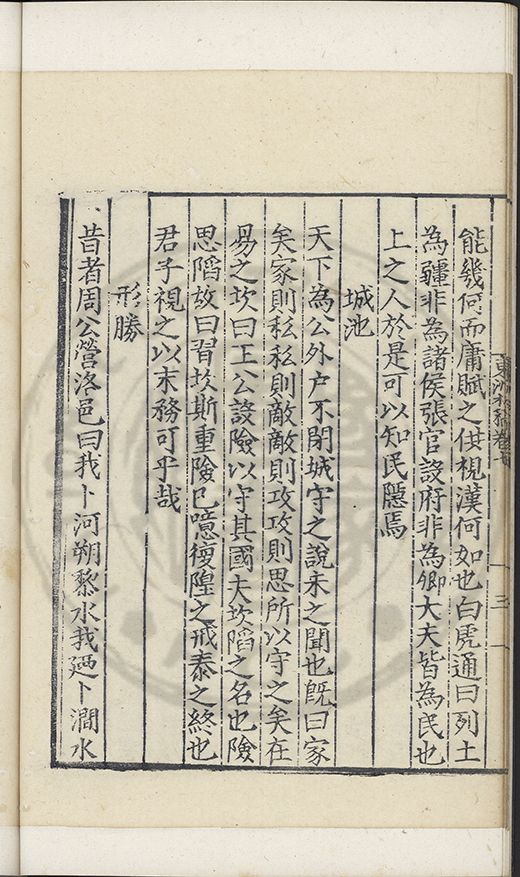 能幾何而庸賦之供視漢何如也白虎通曰列土
為疆非為諸侯張官設府非為卿大夫皆為民也
上之人於是可以知民隱焉
城池
天下為公外户不閉城守之說未之聞也旣曰家
矣家則私私則敵敵則攻攻則思所以守之矣在
易之坎曰王公設險以守其國夫坎䧟之名也險
思䧟故曰習坎斯重險已噫復隍之戒泰之終也
君子視之以末務可乎哉
形勝
昔者周公營洛邑曰我卜河朔黎水我廼卜澗水
三